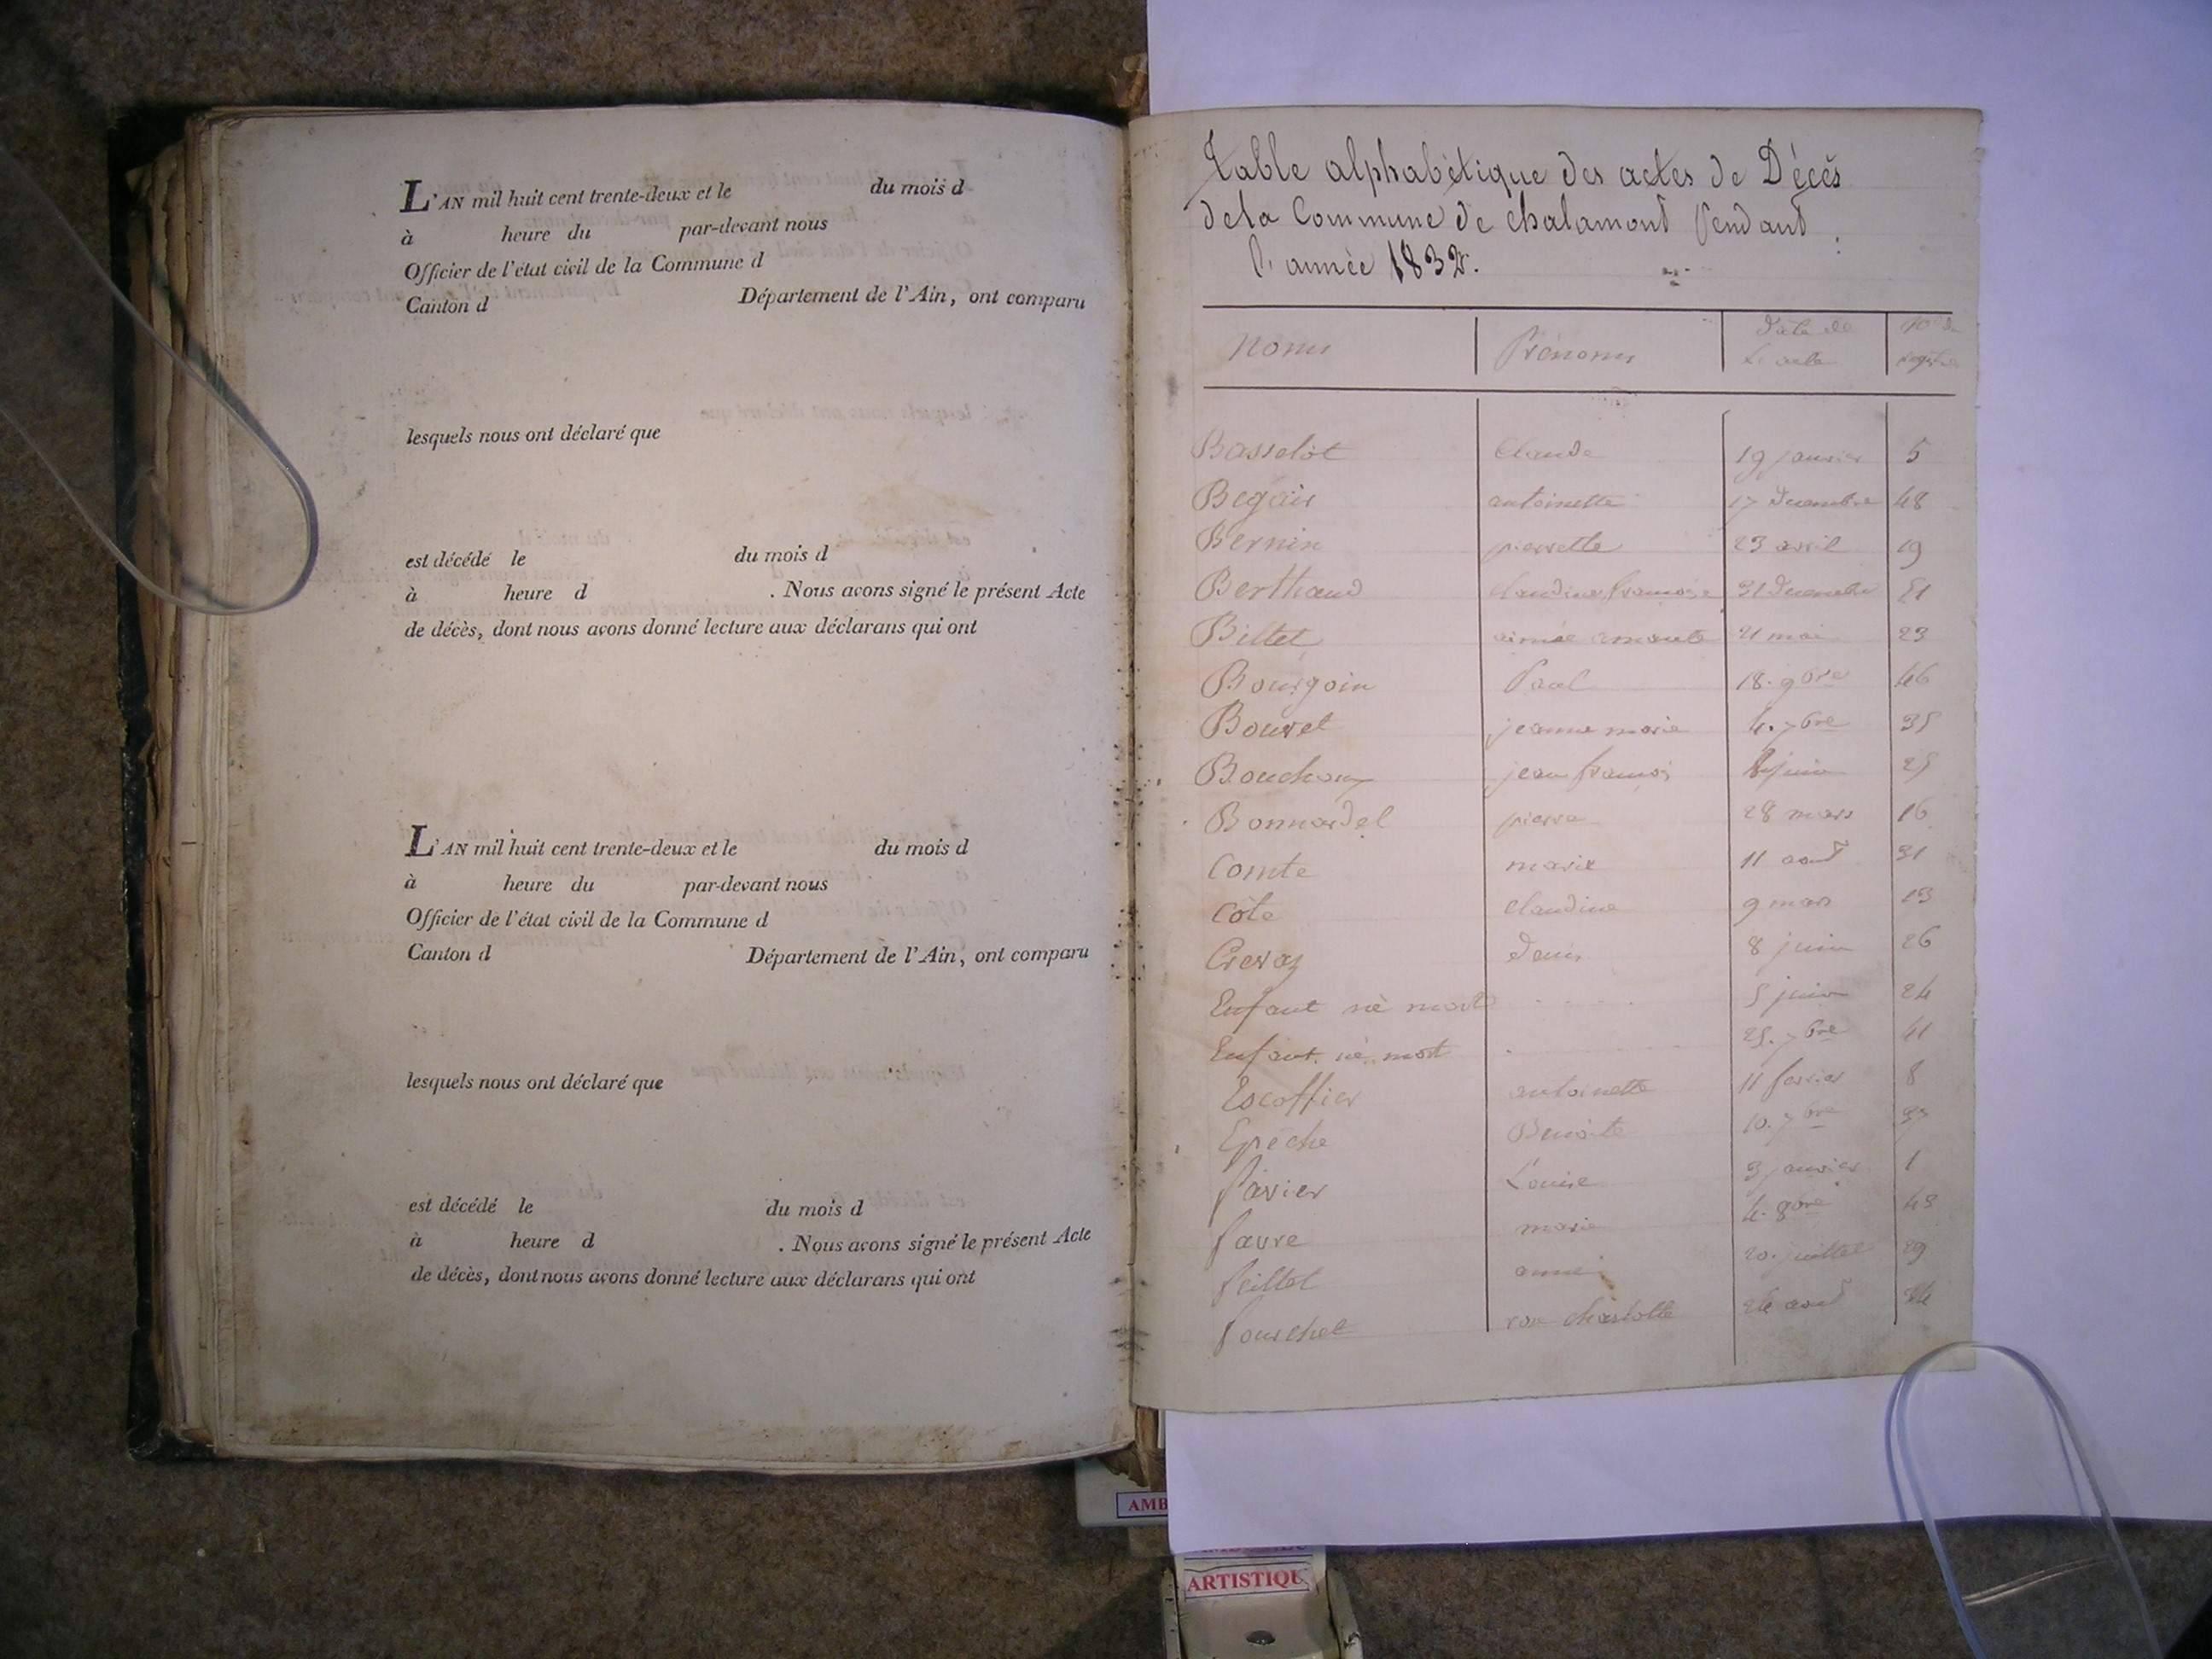 L'AN mil huit cent trente-deux et le du mois d
à heure du par-devant nous
Officier de l'état civil de la Commune d
Canton d Département de l'Ain, ont comparu
lesquels nous ont déclaré que
est décédé le du mois d
à heure d . Nous avons signé le présent Acte
de décès, dont nous avons donné lecture aux déclarans qui ont
L'AN mil huit cent trente-deux et le du mois d
à heure du par-devant nous
Officier de l'état civil de la Commune d
Canton d Département de l'Ain, ont comparu
lesquels nous ont déclaré que
est décédé le du mois d
à heure d . Nous avons signé le présent Acte
de décès, dont nous avons donné lecture aux déclarans qui ont
Table alphabétique des actes de Décès
de la Commune de chalamont Pendant
l'année 1832.
Noms Prénoms Date de l'acte No du registre
Basselot Claude 19 janvier 5
Begair antoinette 17 Decembre 48
Bernin pierrette 23 avril 19
Berthaud claudine françoise 31 Decembre 51
Billet aimée 21 mai 23
Bourgoin Paul 18. 9bre 46
Bouvet jeanne marie 4. 7bre 35
Bouchoux jean françois juin 25
Bonnardel pierre 28 mars 16
Comte marie 11 aout 31
Côte claudine 9 mars 13
Crevaz denis 8 juin 26
Enfant né mort 5 juin 24
Enfant né mort 25. 7bre 41
Escoffier antoinette 11 fevrier 8
Epeche Benoite 10. 7bre 37
favier Louise 3 janvier 1
favre marie 4. 8bre 43
feillel anne 20. juillet 29
fourchet rose charlotte 26 aout 34
AMB
ARTISTIQU